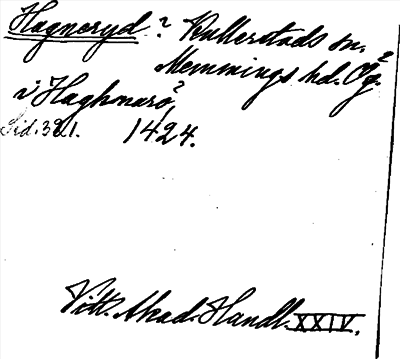 Hagneryd? Kullerstads sn,
Memmings hd. Ög.?
i Haghnarö?
Sid. 321. 1424.
Vitt. Akad. Handl. XXIV.